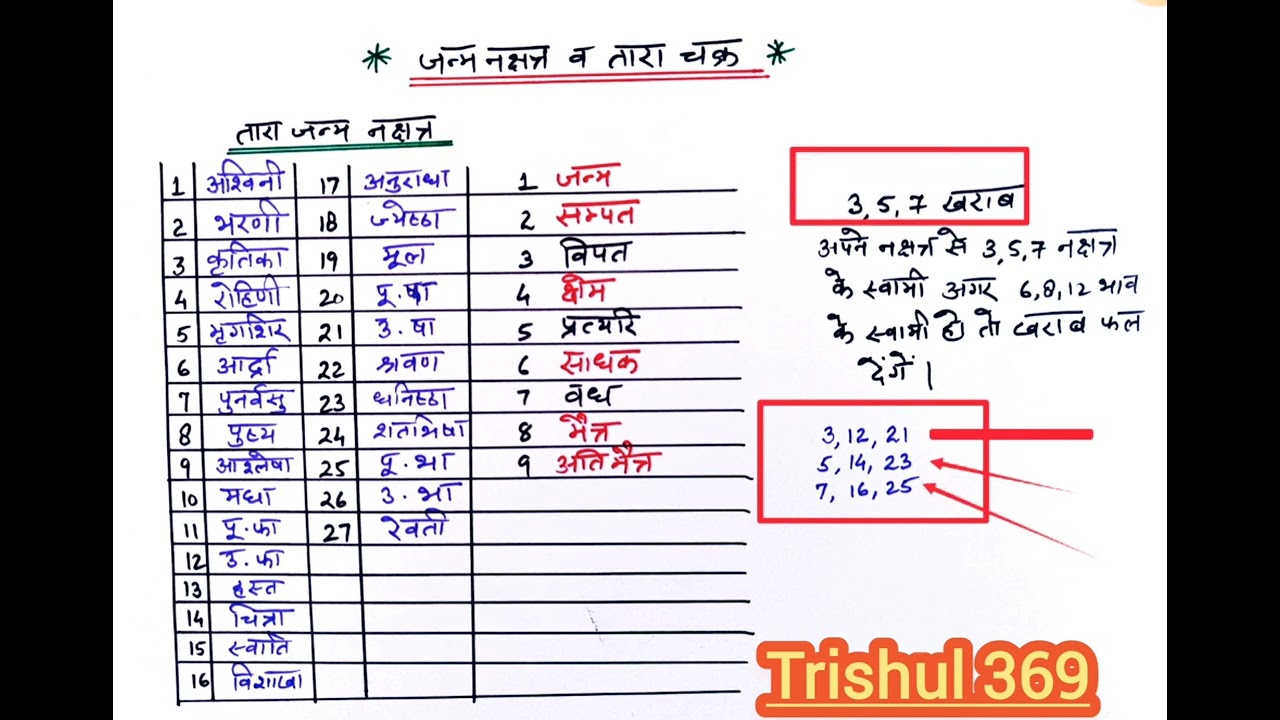 * जन्म नक्षत्र व तारा चक्र *
तारा जन्म नक्षत्र
1 अश्विनी 17 अनुराधा 1 जन्म
2 भरणी 18 ज्येष्ठा 2 सम्पत
3 कृतिका 19 मूल 3 विपत
4 रोहिणी 20 पू.षा 4 क्षेम
5 मृगशिर 21 उ.षा 5 प्रत्यरि
6 आर्द्रा 22 श्रवण 6 साधक
7 पुनर्वसु 23 धनिष्ठा 7 वध
8 पुष्य 24 शतभिषा 8 मैत्र
9 आश्लेषा 25 पू.भा 9 अति मैत्र
10 मघा 26 उ.भा
11 पू.फा 27 रेवती
12 उ.फा
13 हस्त
14 चित्रा
15 स्वाति
16 विशाखा
3, 5, 7 खराब
अपने नक्षत्र से 3,5,7 नक्षत्र
के स्वामी अगर 6,8,12 भाव
के स्वामी हो तो खराब फल
देंगें।
3, 12, 21
5, 14, 23
7, 16, 25
Trishul 369